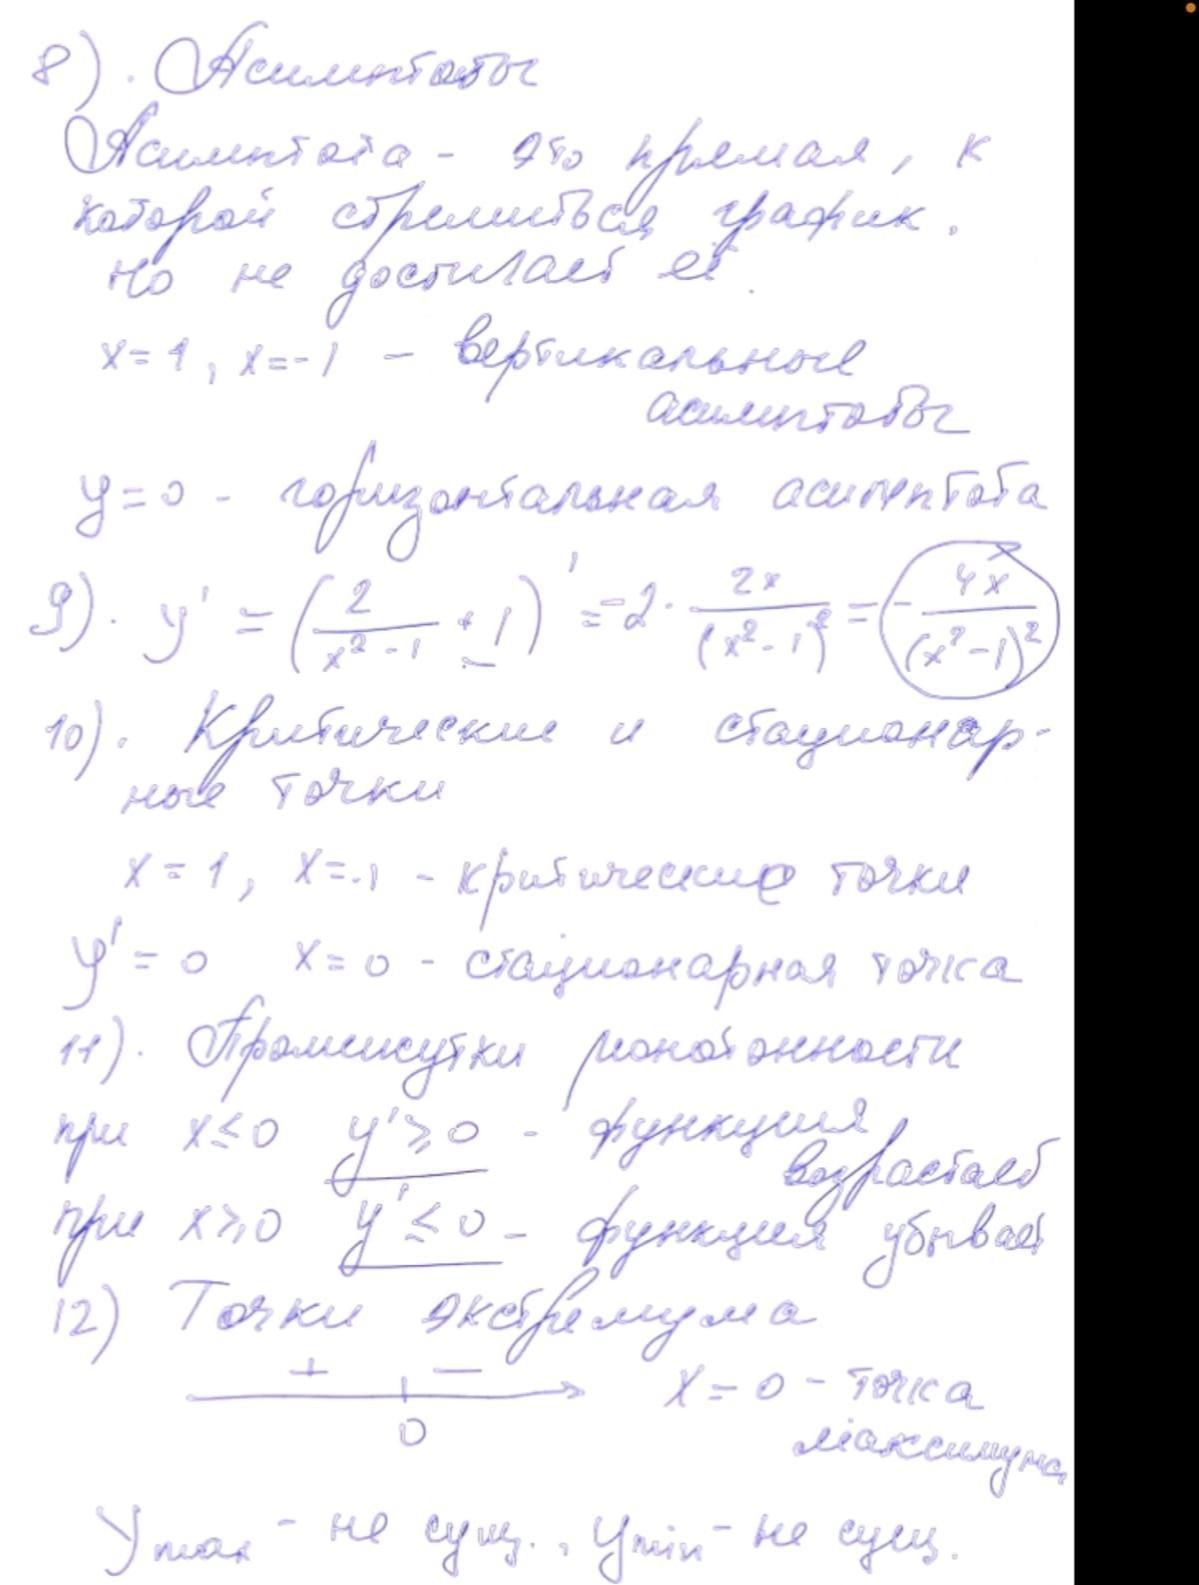 8). Асимптоты
Асимптота - это прямая, к
которой стремиться график,
но не достигает её.
x=1, x=-1 - вертикальные
асимптоты
y=0 - горизонтальная асимптота
9). y' = (2/(x²-1) + 1)' = -2 · 2x/(x²-1)² = -4x/(x²-1)²
10). Критические и стационар-
ные точки
x=1, x=-1 - критические точки
y'=0 x=0 - стационарная точка
11). Промежутки монотонности
при x≤0 y'≥0 - функция
возрастает
при x≥0 y'≤0 - функция убывает
12) Точки экстремума
+ −
0
x=0 - точка
максимума
y max - не сущ., y min - не сущ.